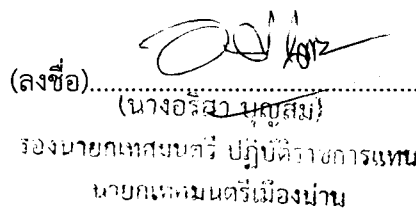 (ลงชื่อ)........................................
(นางอริสา บุญสม)
รองนายกเทศมนตรี ปฏิบัติราชการแทน
นายกเทศมนตรีเมืองน่าน